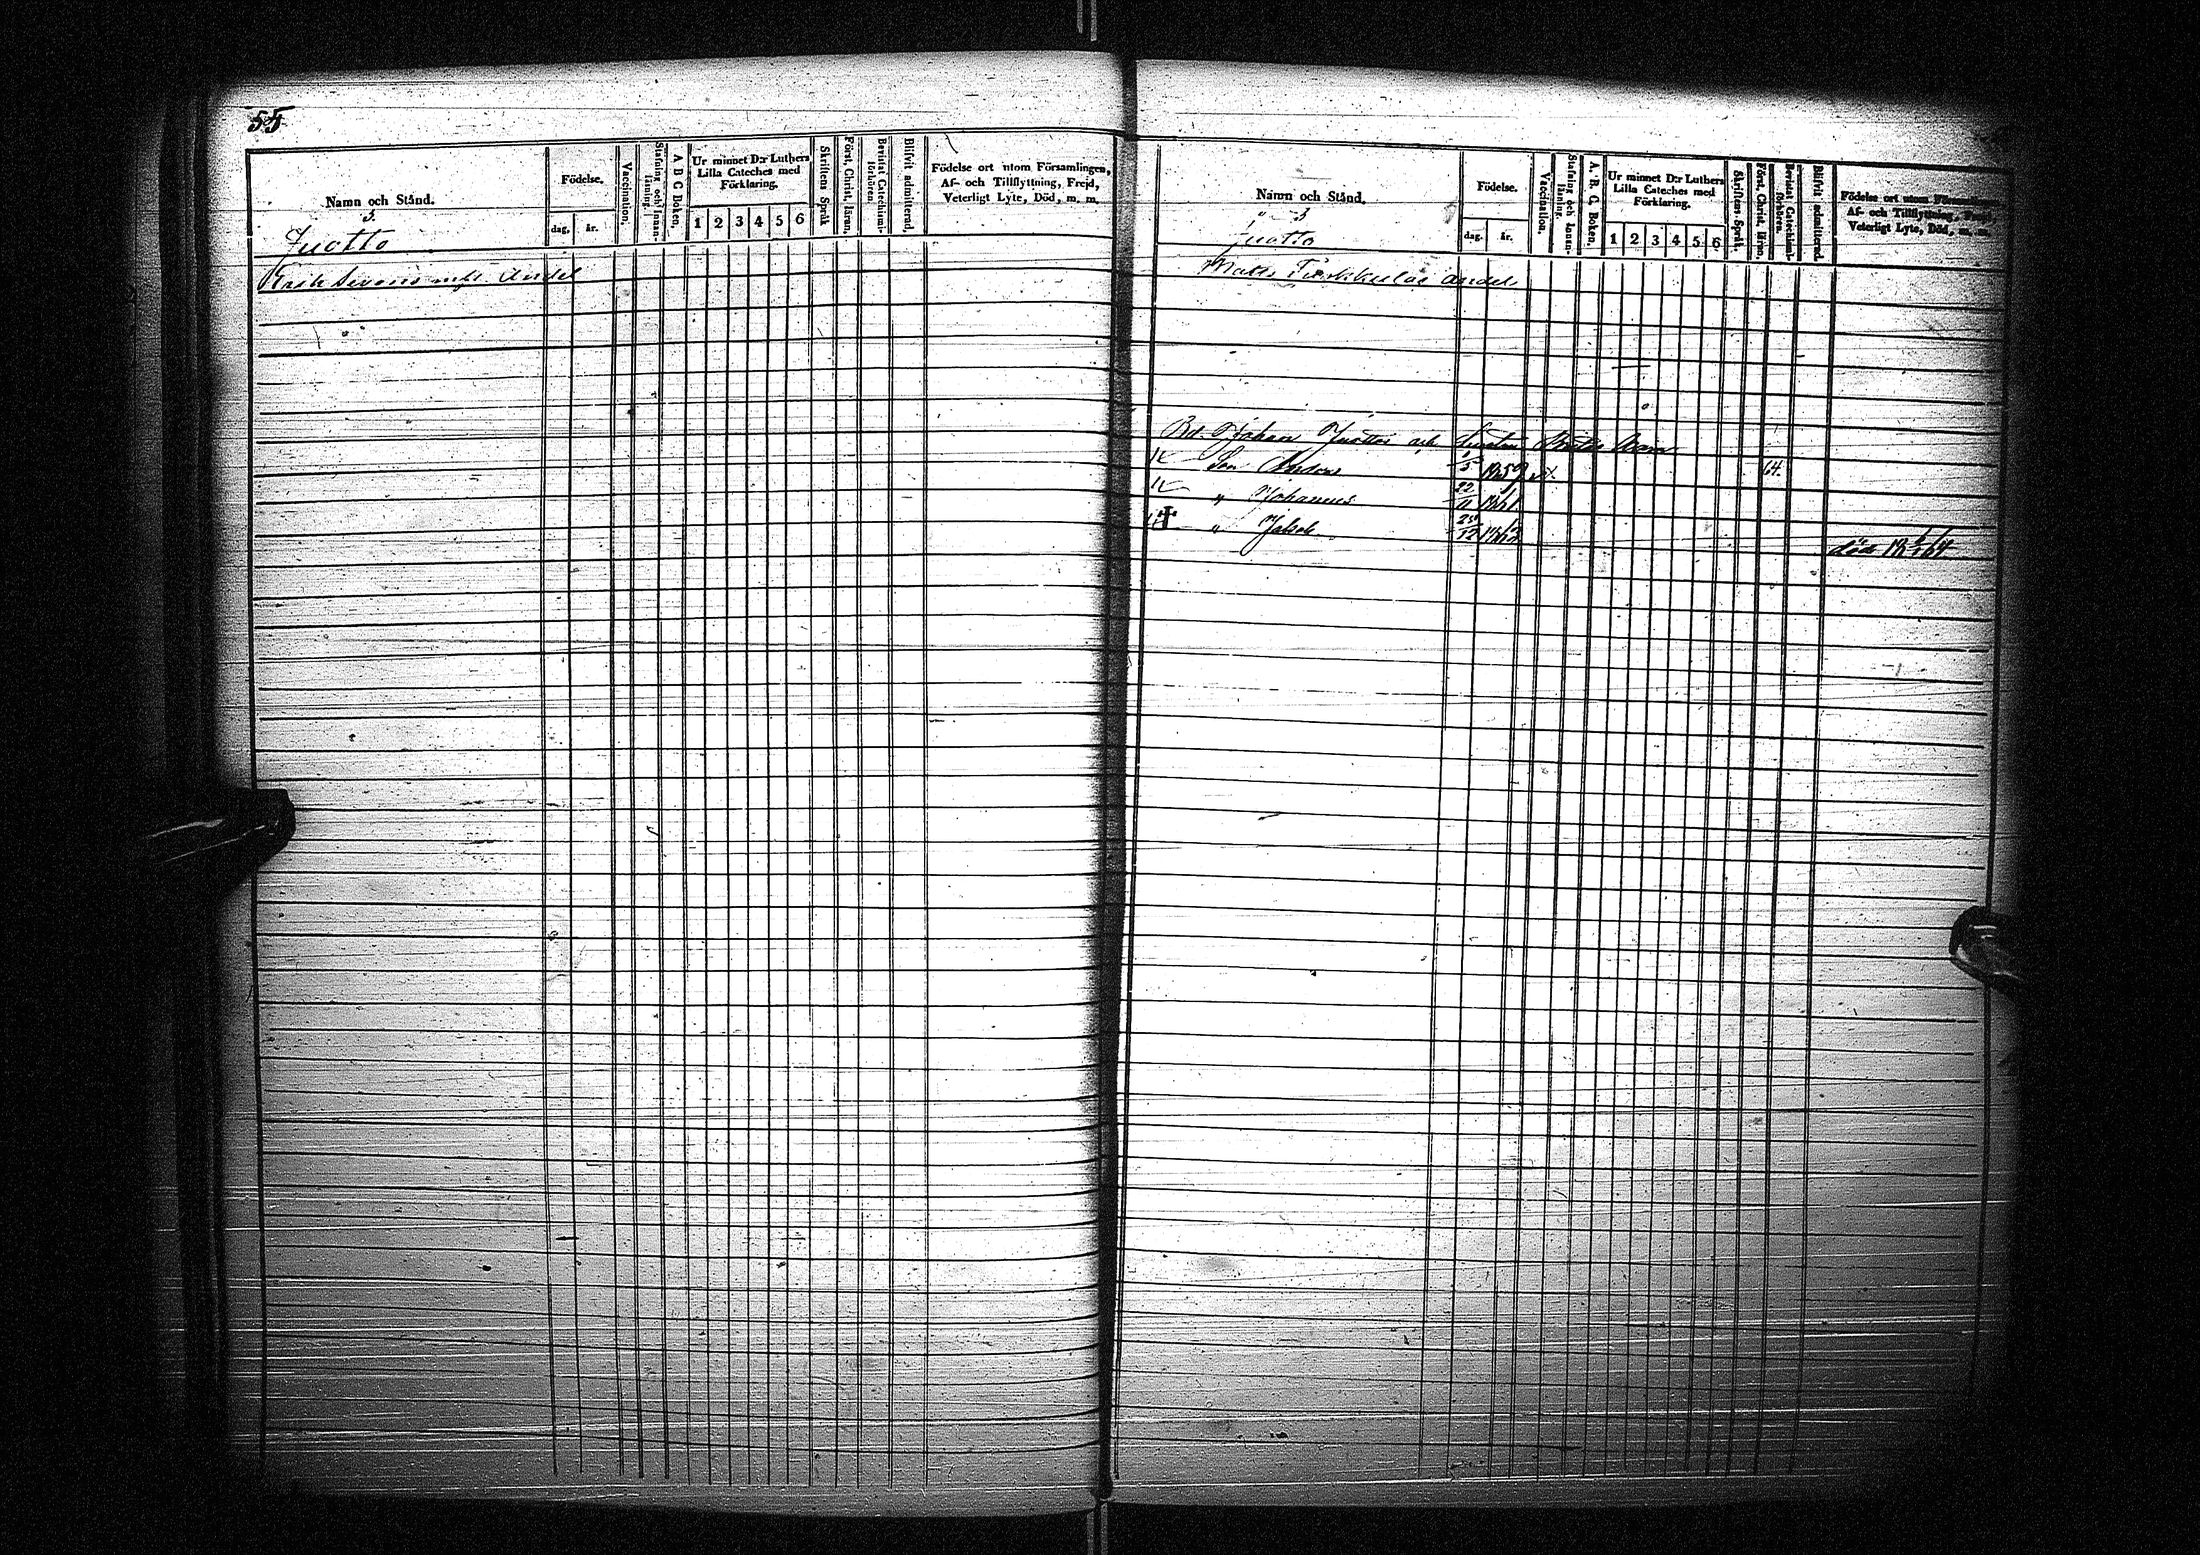 55
Namn och Stånd.
Födelse.
dag.
år.
Vaccination.
Stafning och Innanläsning.
A B C Boken.
Ur minnet D:r Luthers
Lilla Cateches med
Förklaring.
1 2 3 4 5 6
Skriftens Språk
Först. Christ. läran.
Bevistat Catechismiförhören.
Blifvit admitterad.
Födelse ort utom Församlingen,
Af- och Tillflyttning, Frejd,
Veterligt Lyte, Död, m. m.
3.
Juotto
Andel
Namn och Stånd.
Födelse.
dag.
år.
Vaccination.
Stafning och Innanläsning.
A. B. C. Boken.
Ur minnet D:r Luthers
Lilla Cateches med
Förklaring.
1 2 3 4 5 6
Skriftens Språk.
Först. Christ. läran.
Bevistat Catechismiförhören.
Blifvit admitterad.
Födelse ort utom Församlingen,
Af- och Tillflyttning, Frejd,
Veterligt Lyte, Död, m. m.
" 3
Juotto
Matts andel
Johan Juottos och Barn
Son Anders 1/5 1859 64.
" Johannes 22/11 1861
" Jakob 12
död